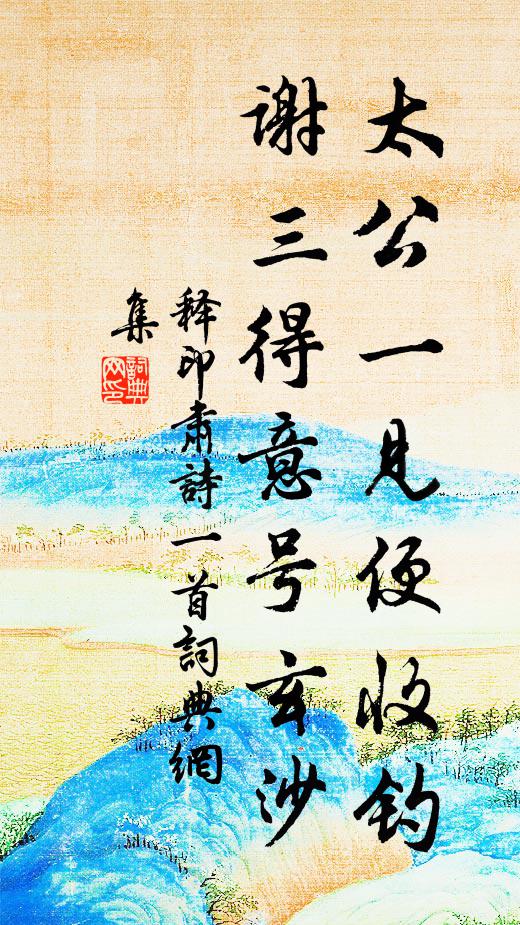 太公一見便收钓
谢三得意号玄沙
释印肃詩一首詞典網
集
詞典網印